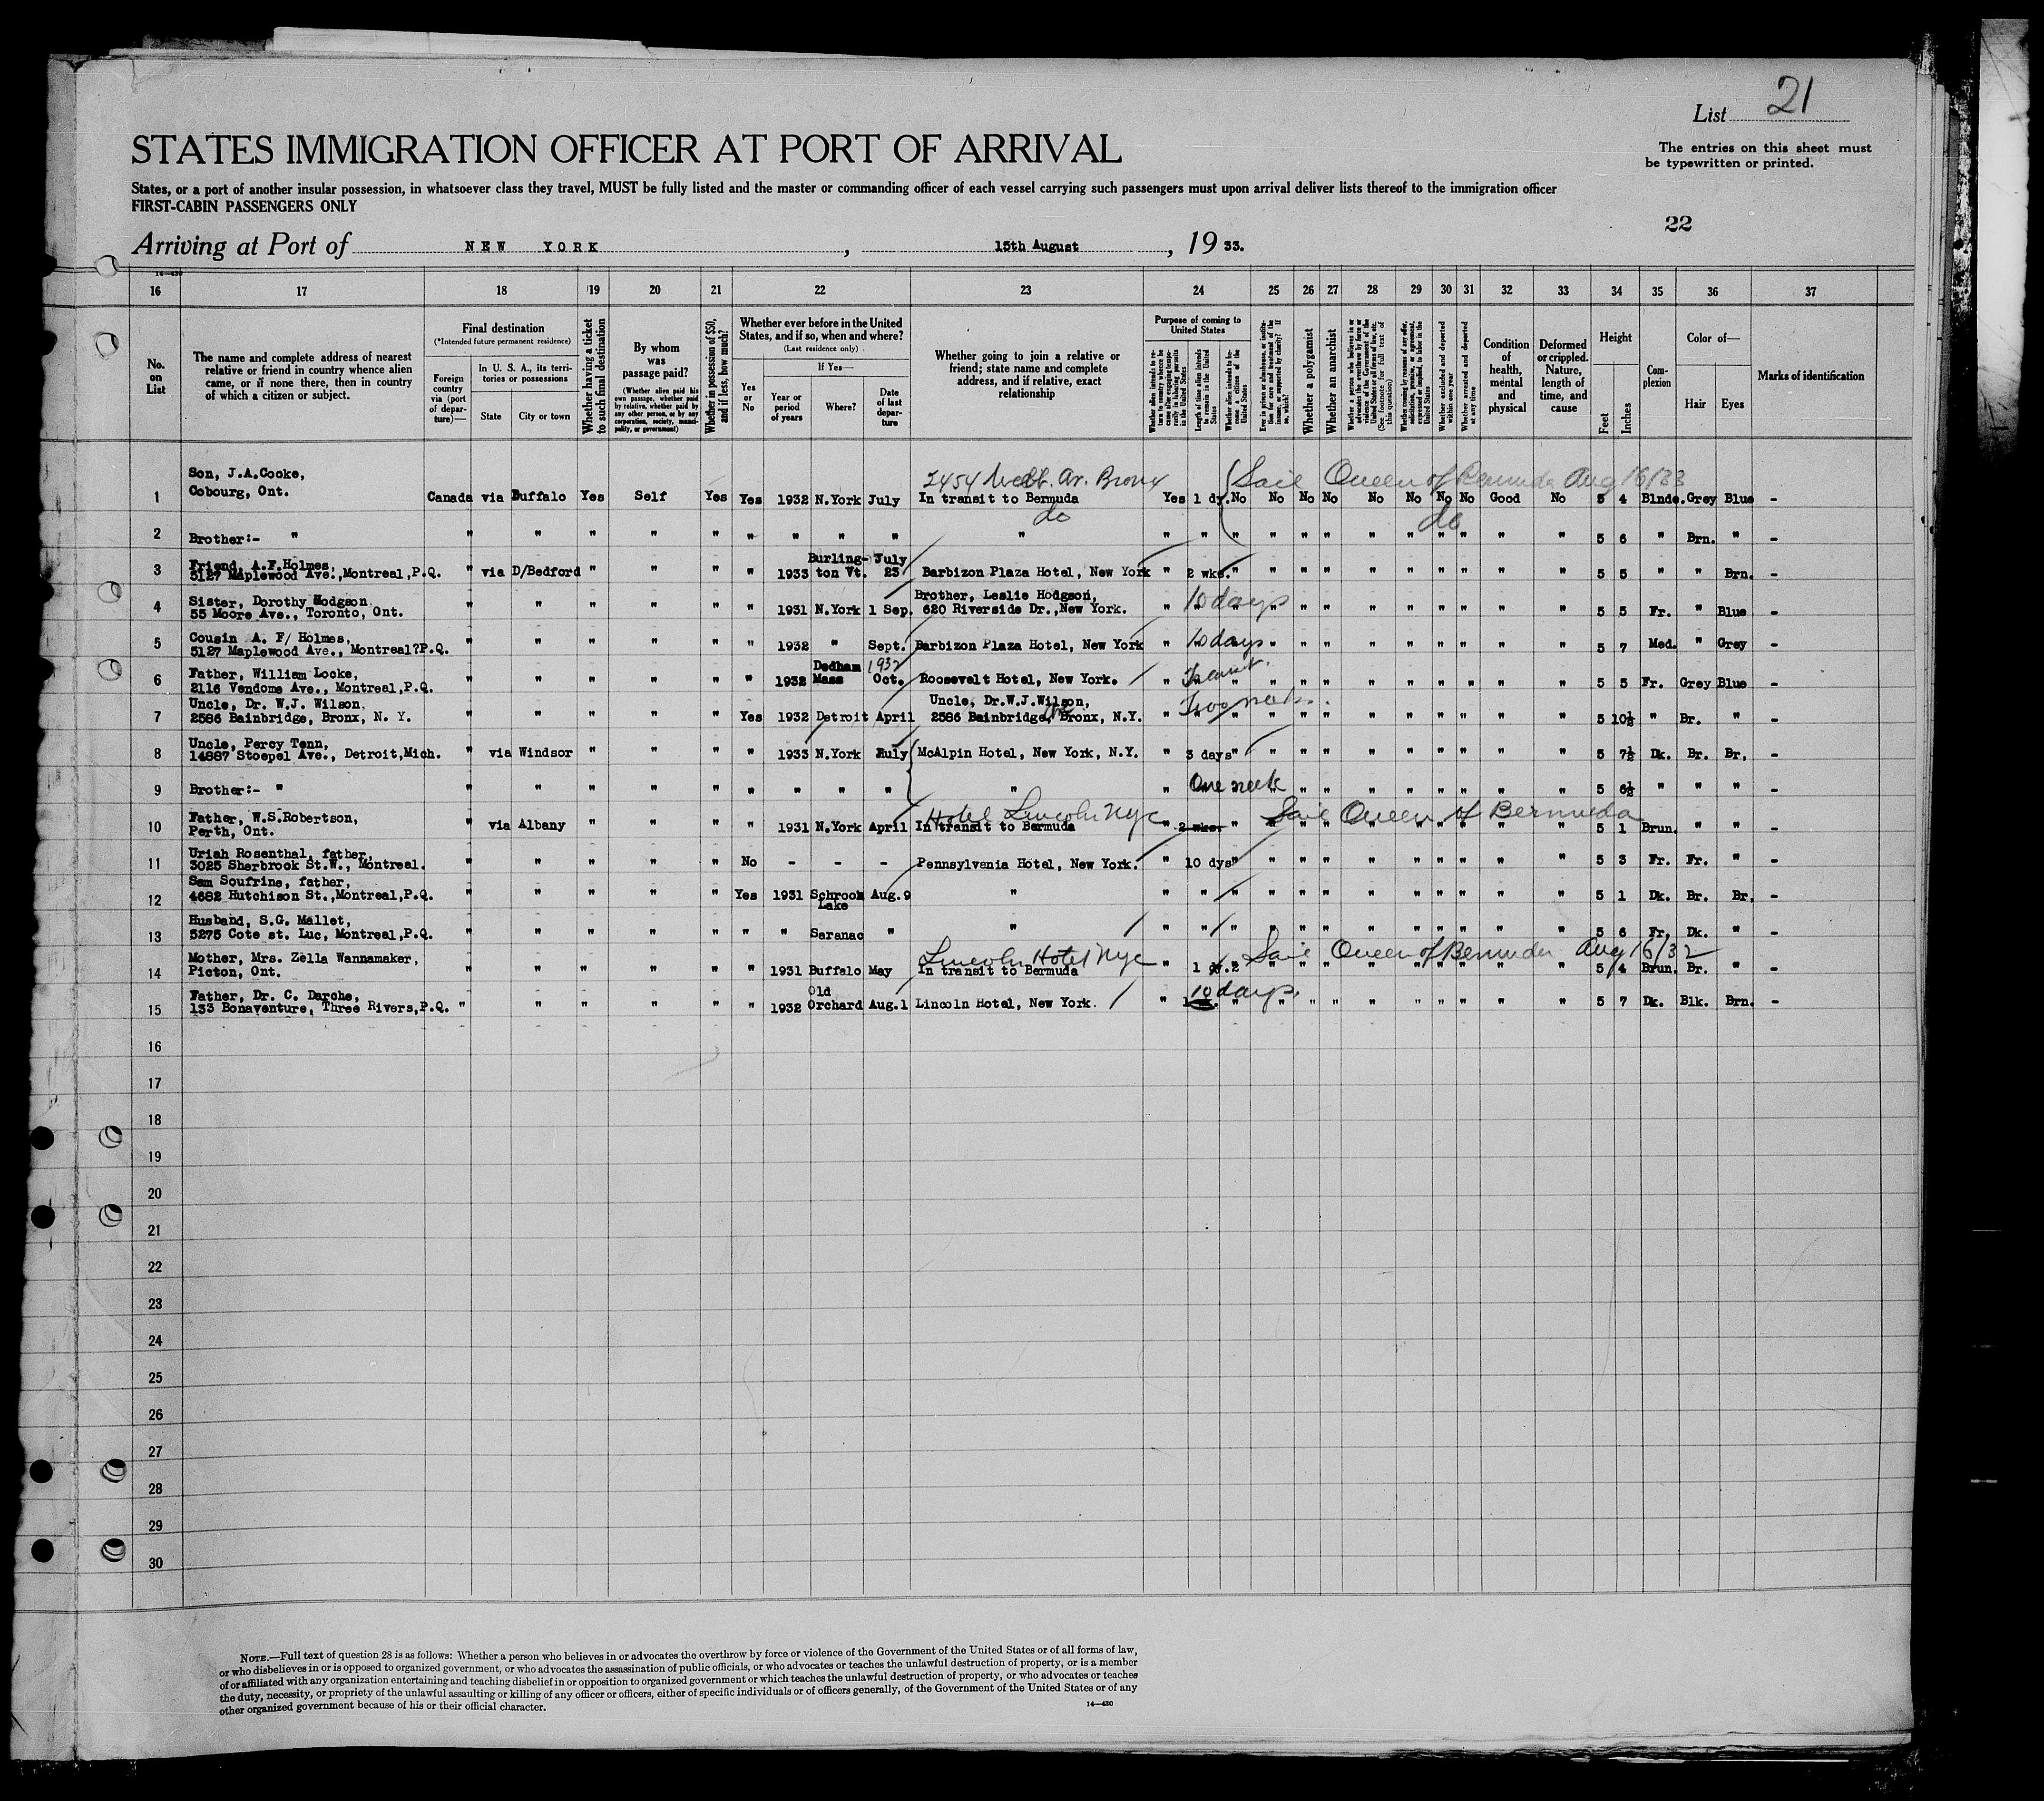 List 21
STATES IMMIGRATION OFFICER AT PORT OF ARRIVAL
The entries on this sheet must
be typewritten or printed.
States, or a port of another insular possession, in whatsoever class they travel, MUST be fully listed and the master or commanding officer of each vessel carrying such passengers must upon arrival deliver lists thereof to the immigration officer
FIRST-CABIN PASSENGERS ONLY
22
Arriving at Port of NEW YORK, 15th August, 19 33.
16 17 18 19 20 21 22 23 24 25 26 27 28 29 30 31 32 33 34 35 36 37
No. on List
The name and complete address of nearest relative or friend in country whence alien came, or if none there, then in country of which a citizen or subject.
Final destination
(*Intended future permanent residence)
Foreign country via (port of departure)—
In U. S. A., its territories or possessions
State City or town
Whether having a ticket to such final destination
By whom was passage paid?
(Whether alien paid his own passage, whether paid by relative, whether paid by any other person, or by any corporation, society, municipality, or government)
Whether in possession of $50, and if less, how much?
Whether ever before in the United States, and if so, when and where?
(Last residence only)
Yes or No
If Yes—
Year or period of years
Where?
Date of last departure
Whether going to join a relative or friend; state name and complete address, and if relative, exact relationship
Purpose of coming to United States
Length of time alien intends to remain in the United States
Whether a polygamist
Whether an anarchist
Condition of health, mental and physical
Deformed or crippled. Nature, length of time, and cause
Height
Feet Inches
Complexion
Color of—
Hair Eyes
Marks of identification
Son, J.A.Cooke, 2454 Av. Bronx (Sail Queen of Bermuda Aug 16/33
1 Cobourg, Ont. Canada via Buffalo Yes Self Yes Yes 1932 N.York July In transit to Bermuda Yes 1 dy. No No No No No No No No Good No 5 4 Blnde. Grey Blue -
do do
2 Brother:- " " " " " " " " " " " " " " " " " " " " " " " " 5 6 " Brn. " -
Friend, A.F.Holmes, Burling- July
3 5127 Maplewood Ave.,Montreal,P.Q. " via D/Bedford " " " " 1933 ton Vt. 23 Barbizon Plaza Hotel, New York " 2 wks. " " " " " " " " " " 5 5 " " Brn. -
Sister, Dorothy Hodgson Brother, Leslie Hodgson, 10 days
4 55 Moore Ave., Toronto, Ont. " " " " " " 1931 N.York 1 Sep. 620 Riverside Dr.,New York. " " " " " " " " " " " " 5 5 Fr. " Blue -
Cousin A. F/ Holmes, 10 days
5 5127 Maplewood Ave., Montreal?P.Q. " " " " " " 1932 " Sept. Barbizon Plaza Hotel, New York " " " " " " " " " " " 5 7 Med. " Grey -
Father, William Locke, Dedham 1932
6 2116 Vendome Ave., Montreal,P.Q. " " " " " " 1932 Mass Oct. Roosevelt Hotel, New York. " " " " " " " " " " " 5 5 Fr. Grey Blue -
Uncle, Dr. W.J. Wilson, Uncle, Dr.W.J.Wilson, Two weeks.
7 2586 Bainbridge, Bronx, N. Y. " " " " " Yes 1932 Detroit April 2586 Bainbridge, Ave Bronx, N.Y. " " " " " " " " " " " 5 10½ " Br. " -
Uncle, Percy Tenn,
8 14887 Stoepel Ave., Detroit,Mich. " via Windsor " " " " 1933 N.York July McAlpin Hotel, New York, N.Y. " 3 days " " " " " " " " " " 5 7½ Dk. Br. Br. -
9 Brother:- " " " " " " " " " " " " One week " " " " " " " " 5 6½ " " " -
Father, W.S.Robertson, Hotel Lincoln NYC Sail Queen of Bermuda
10 Perth, Ont. " via Albany " " " " 1931 N.York April In transit to Bermuda " 2 wks. " " " " " " " " " " 5 1 Brun. " " -
Uriah Rosenthal, father,
11 3025 Sherbrook St.W., Montreal. " " " " " No - - - Pennsylvania Hotel, New York. " 10 dys " " " " " " " " " " 5 3 Fr. Fr. " -
Sam Soufrine, father,
12 4682 Hutchison St.,Montreal,P.Q. " " " " " Yes 1931 Schroon Lake Aug.9 " " " " " " " " " " " " " 5 1 Dk. Br. Br. -
Husband, S.G. Mallet,
13 5275 Cote st. Luc, Montreal,P.Q. " " " " " " " Saranac " " " " " " " " " " " " " " 5 6 Fr. Dk. " -
Mother, Mrs. Zella Wannamaker, Lincoln Hotel NYC Sail Queen of Bermuda Aug 16/32
14 Picton, Ont. " " " " " " 1931 Buffalo May In transit to Bermuda " 1 " " " " " " " " " 5 4 Brun. Br. " -
Father, Dr. C. Darche, Old 10 days.
15 133 Bonaventure, Three Rivers,P.Q. " " " " " " 1932 Orchard Aug.1 Lincoln Hotel, New York. " " " " " " " " " " " 5 7 Dk. Blk. Brn. -
16
17
18
19
20
21
22
23
24
25
26
27
28
29
30
NOTE.—Full text of question 28 is as follows: Whether a person who believes in or advocates the overthrow by force or violence of the Government of the United States or of all forms of law,
or who disbelieves in or is opposed to organized government, or who advocates the assassination of public officials, or who advocates or teaches the unlawful destruction of property, or is a member
of or affiliated with any organization entertaining and teaching disbelief in or opposition to organized government or which teaches the unlawful destruction of property, or who advocates or teaches
the duty, necessity, or propriety of the unlawful assaulting or killing of any officer or officers, either of specific individuals or of officers generally, of the Government of the United States or of any
other organized government because of his or their official character.
14—430